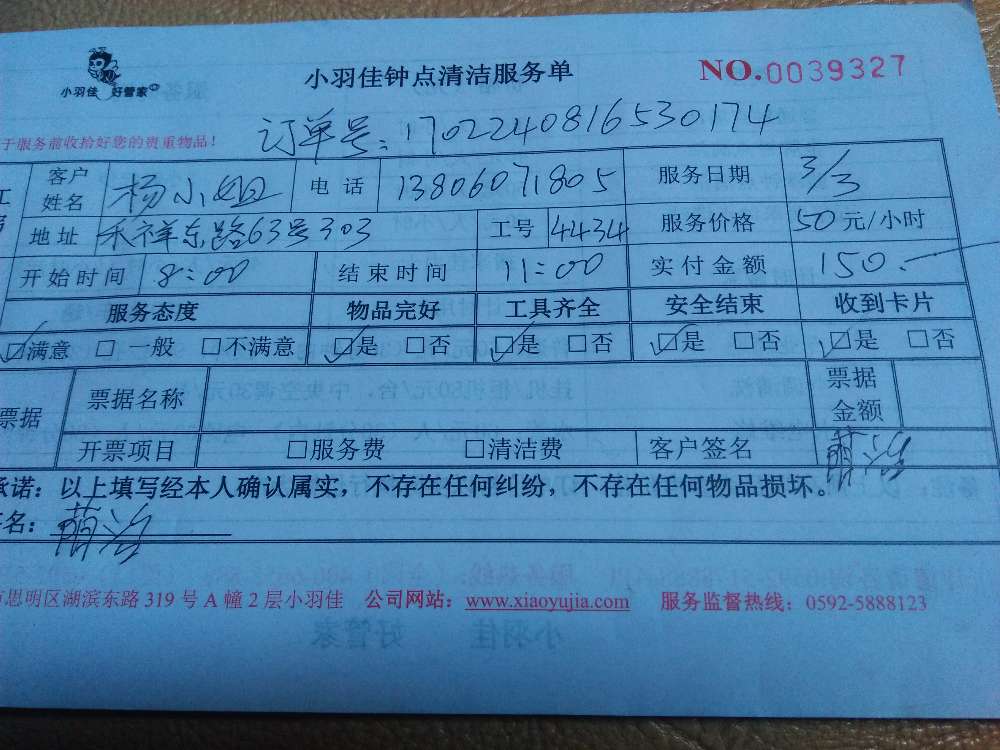 小羽佳 好管家
小羽佳钟点清洁服务单
NO.0039327
于服务前收拾好您的贵重物品!
订单号:1702240816530174
工 客户姓名 杨小姐 电话 13806071805 服务日期 3/3
地址 禾祥东路63号303 工号 4434 服务价格 50元/小时
开始时间 8:00 结束时间 11:00 实付金额 150.-
服务态度 物品完好 工具齐全 安全结束 收到卡片
☑满意 □一般 □不满意 ☑是 □否 ☑是 □否 ☑是 □否 ☑是 □否
票据 票据名称 票据金额
开票项目 □服务费 □清洁费 客户签名
承诺:以上填写经本人确认属实,不存在任何纠纷,不存在任何物品损坏。
名:
思明区湖滨东路319号A幢2层小羽佳 公司网站:www.xiaoyujia.com 服务监督热线:0592-5888123
小羽佳 好管家